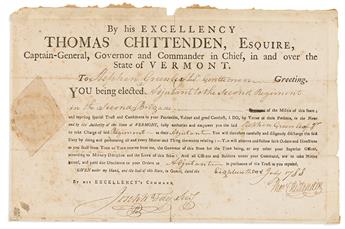 By his EXCELLENCY
THOMAS CHITTENDEN, ESQUIRE,
Captain-General, Governor and Commander in Chief, in and over the
State of VERMONT.
To Stephen Gentleman Greeting.
YOU being elected, Adjutant to the Second Regiment
in the Second Brigade of the Militia of this State;
and reposing special Trust and Confidence in your Patriotism, Valour and good Conduct, I DO, by Virtue of these Presents, in the Name
and by the Authority of the State of VERMONT, fully authorize and empower you the said Stephen
to take Charge of said Regiment as their Adjutant You will therefore carefully and diligently discharge the said
Duty by doing and performing all and every Matter and Thing thereunto relating. You will observe and follow such Orders and Directions
as you shall from Time to Time receive from the Governor of the State for the Time being, or any other your Superior Officer,
according to Military Discipline and the Laws of this State: And all Officers and Soldiers under your Command, are to take Notice
hereof, and yield due Obedience to your Orders, as their Adjutant in pursuance of the Trust in you reposed.
GIVEN under my Hand, and the Seal of this State, in Council, this Eighteenth Day July 1788
By his EXCELLENCY'S COMMAND,
Thos Chittenden
Joseph Fay